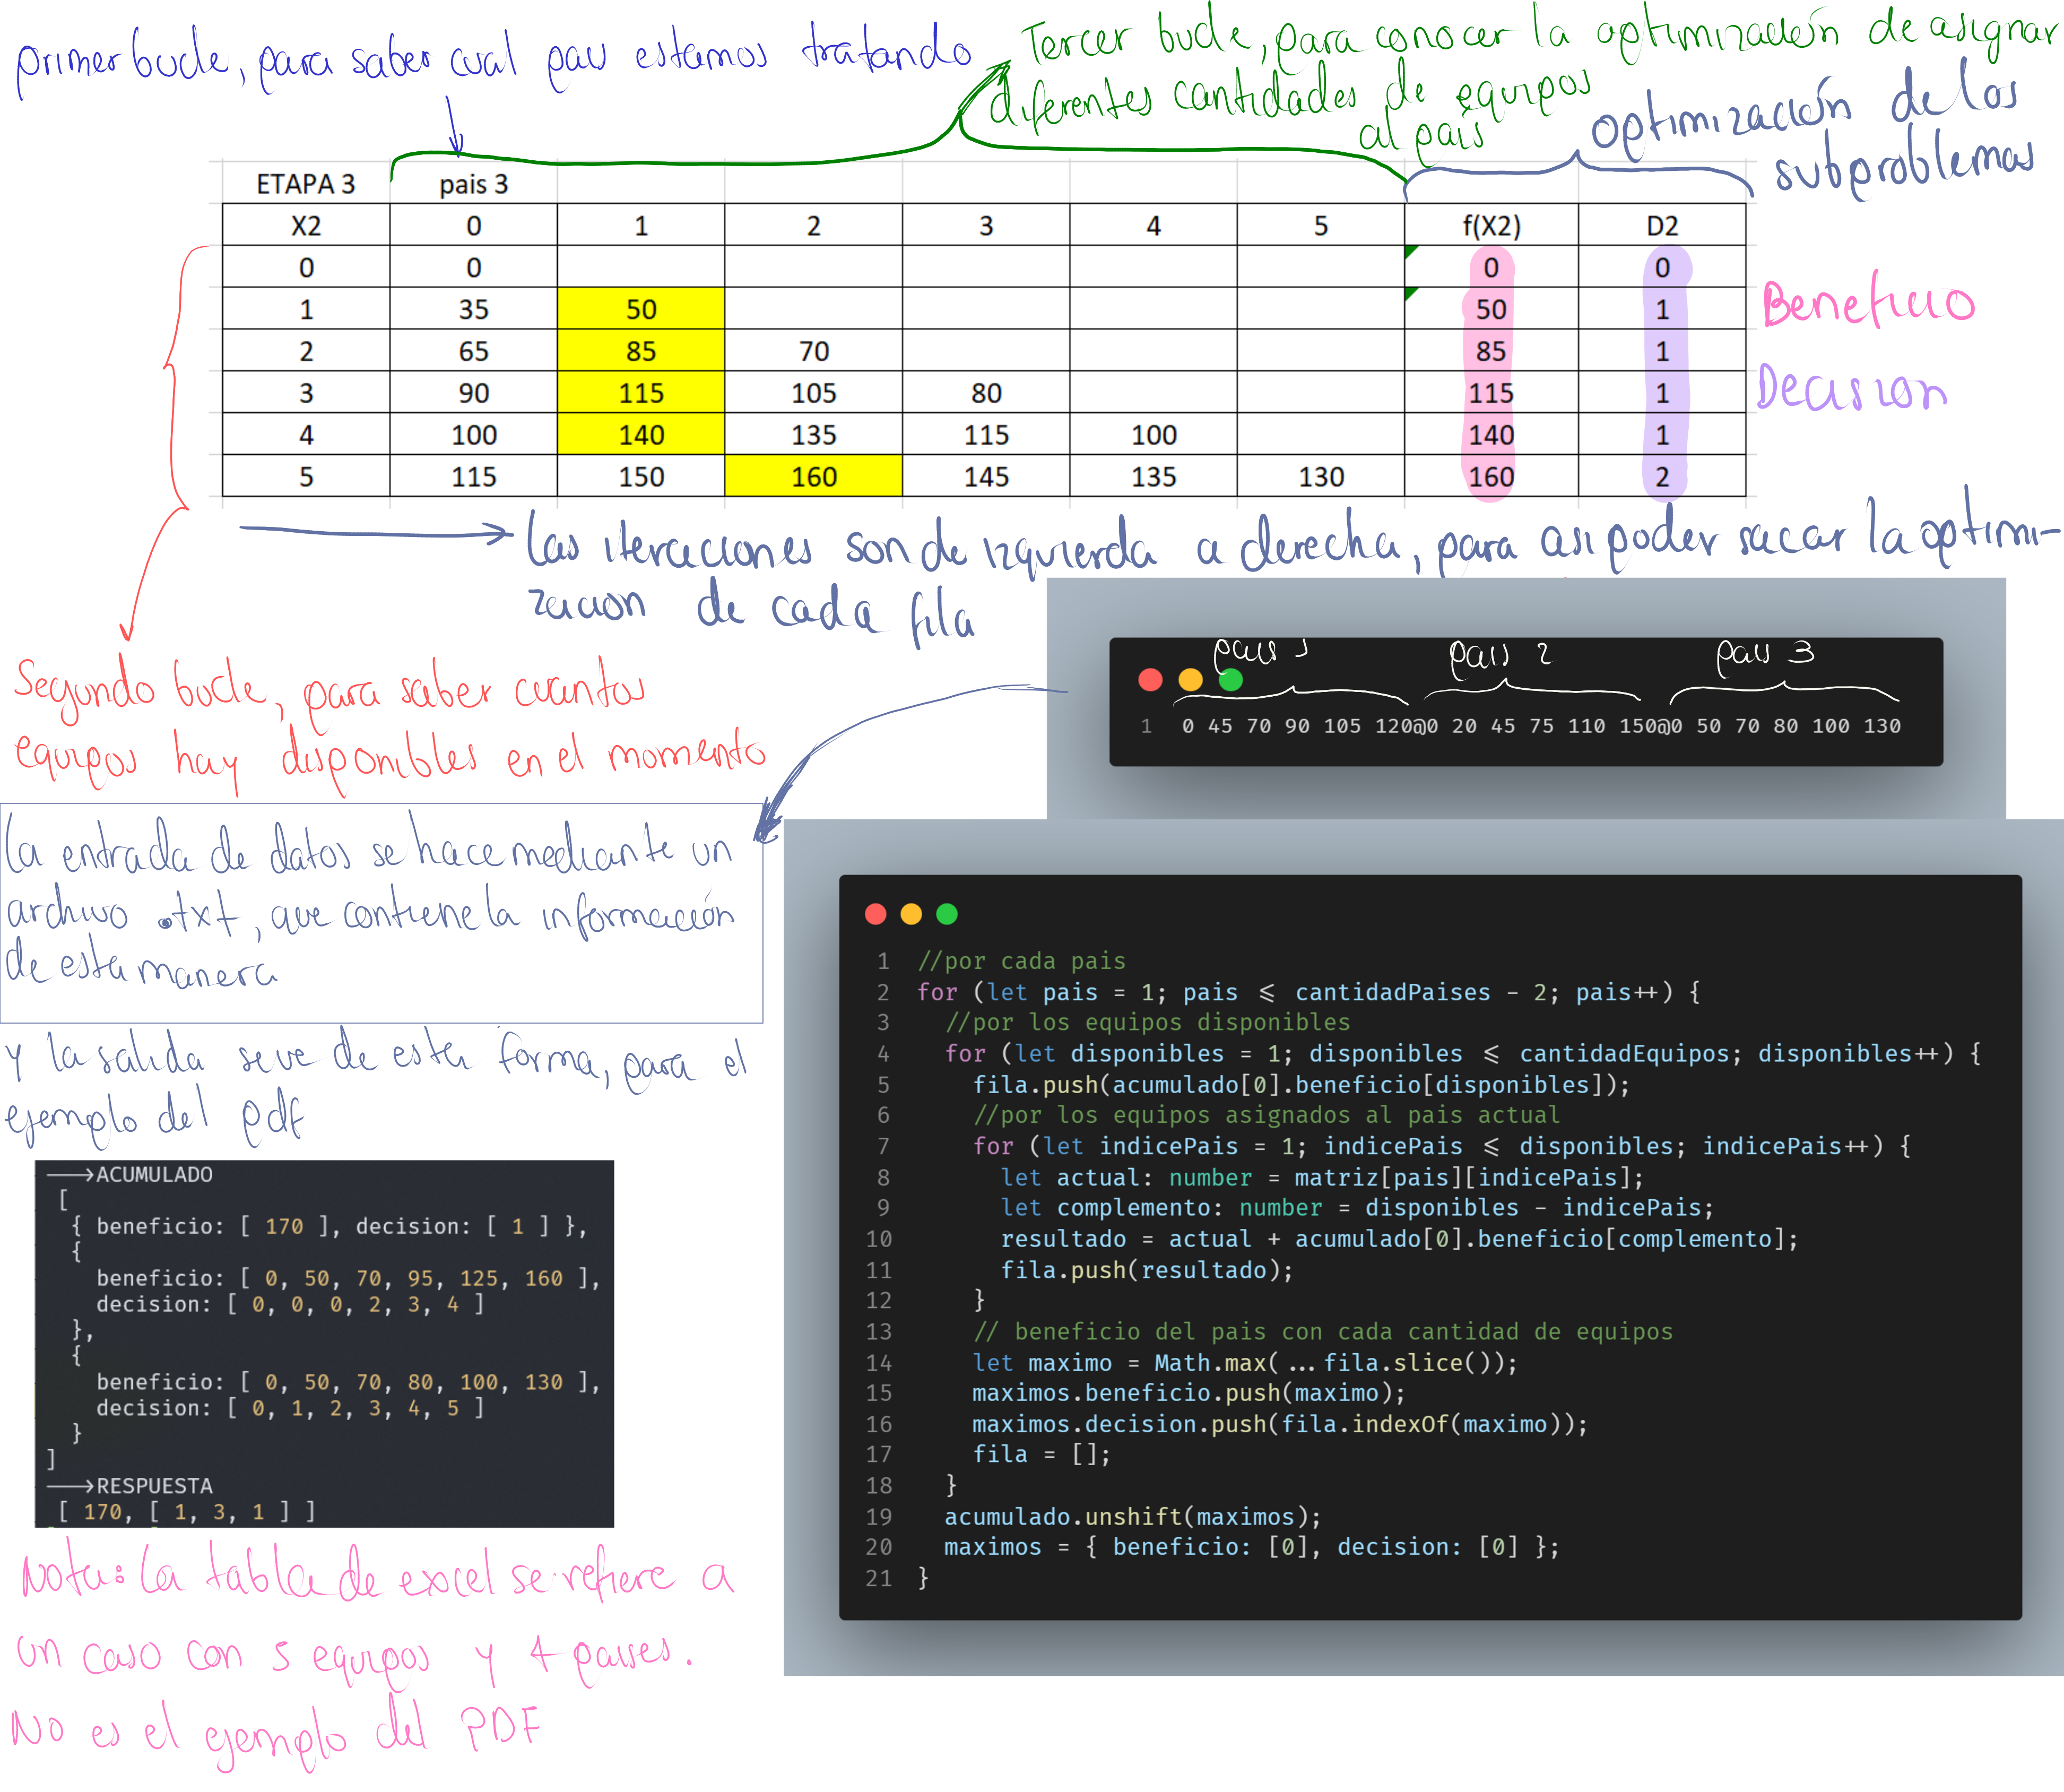 primer bucle, para saber cual pais estamos tratando
Tercer bucle, para conocer la optimización de asignar
diferentes cantidades de equipos
al país
optimización de los
subproblemas
ETAPA 3 pais 3
X2 0 1 2 3 4 5 f(X2) D2
0 0 0 0
1 35 50 50 1
2 65 85 70 85 1
3 90 115 105 80 115 1
4 100 140 135 115 100 140 1
5 115 150 160 145 135 130 160 2
Beneficio
Decision
las iteraciones son de izquierda a derecha, para asi poder sacar la optimi-
zacion de cada fila
Segundo bucle, para saber cuantos
equipos hay disponibles en el momento
pais 1 pais 2 pais 3
1 0 45 70 90 105 120@0 20 45 75 110 150@0 50 70 80 100 130
La entrada de datos se hace mediante un
archivo .txt, que contiene la información
de esta manera
y la salida se ve de esta forma, para el
ejemplo del pdf
⟶ACUMULADO
[
{ beneficio: [ 170 ], decision: [ 1 ] },
{
beneficio: [ 0, 50, 70, 95, 125, 160 ],
decision: [ 0, 0, 0, 2, 3, 4 ]
},
{
beneficio: [ 0, 50, 70, 80, 100, 130 ],
decision: [ 0, 1, 2, 3, 4, 5 ]
}
]
⟶RESPUESTA
[ 170, [ 1, 3, 1 ] ]
Nota: La tabla de excel se refiere a
un caso con 5 equipos y 4 paises.
No es el ejemplo del PDF
1 //por cada pais
2 for (let pais = 1; pais ⩽ cantidadPaises - 2; pais++) {
3 //por los equipos disponibles
4 for (let disponibles = 1; disponibles ⩽ cantidadEquipos; disponibles++) {
5 fila.push(acumulado[0].beneficio[disponibles]);
6 //por los equipos asignados al pais actual
7 for (let indicePais = 1; indicePais ⩽ disponibles; indicePais++) {
8 let actual: number = matriz[pais][indicePais];
9 let complemento: number = disponibles - indicePais;
10 resultado = actual + acumulado[0].beneficio[complemento];
11 fila.push(resultado);
12 }
13 // beneficio del pais con cada cantidad de equipos
14 let maximo = Math.max(...fila.slice());
15 maximos.beneficio.push(maximo);
16 maximos.decision.push(fila.indexOf(maximo));
17 fila = [];
18 }
19 acumulado.unshift(maximos);
20 maximos = { beneficio: [0], decision: [0] };
21 }